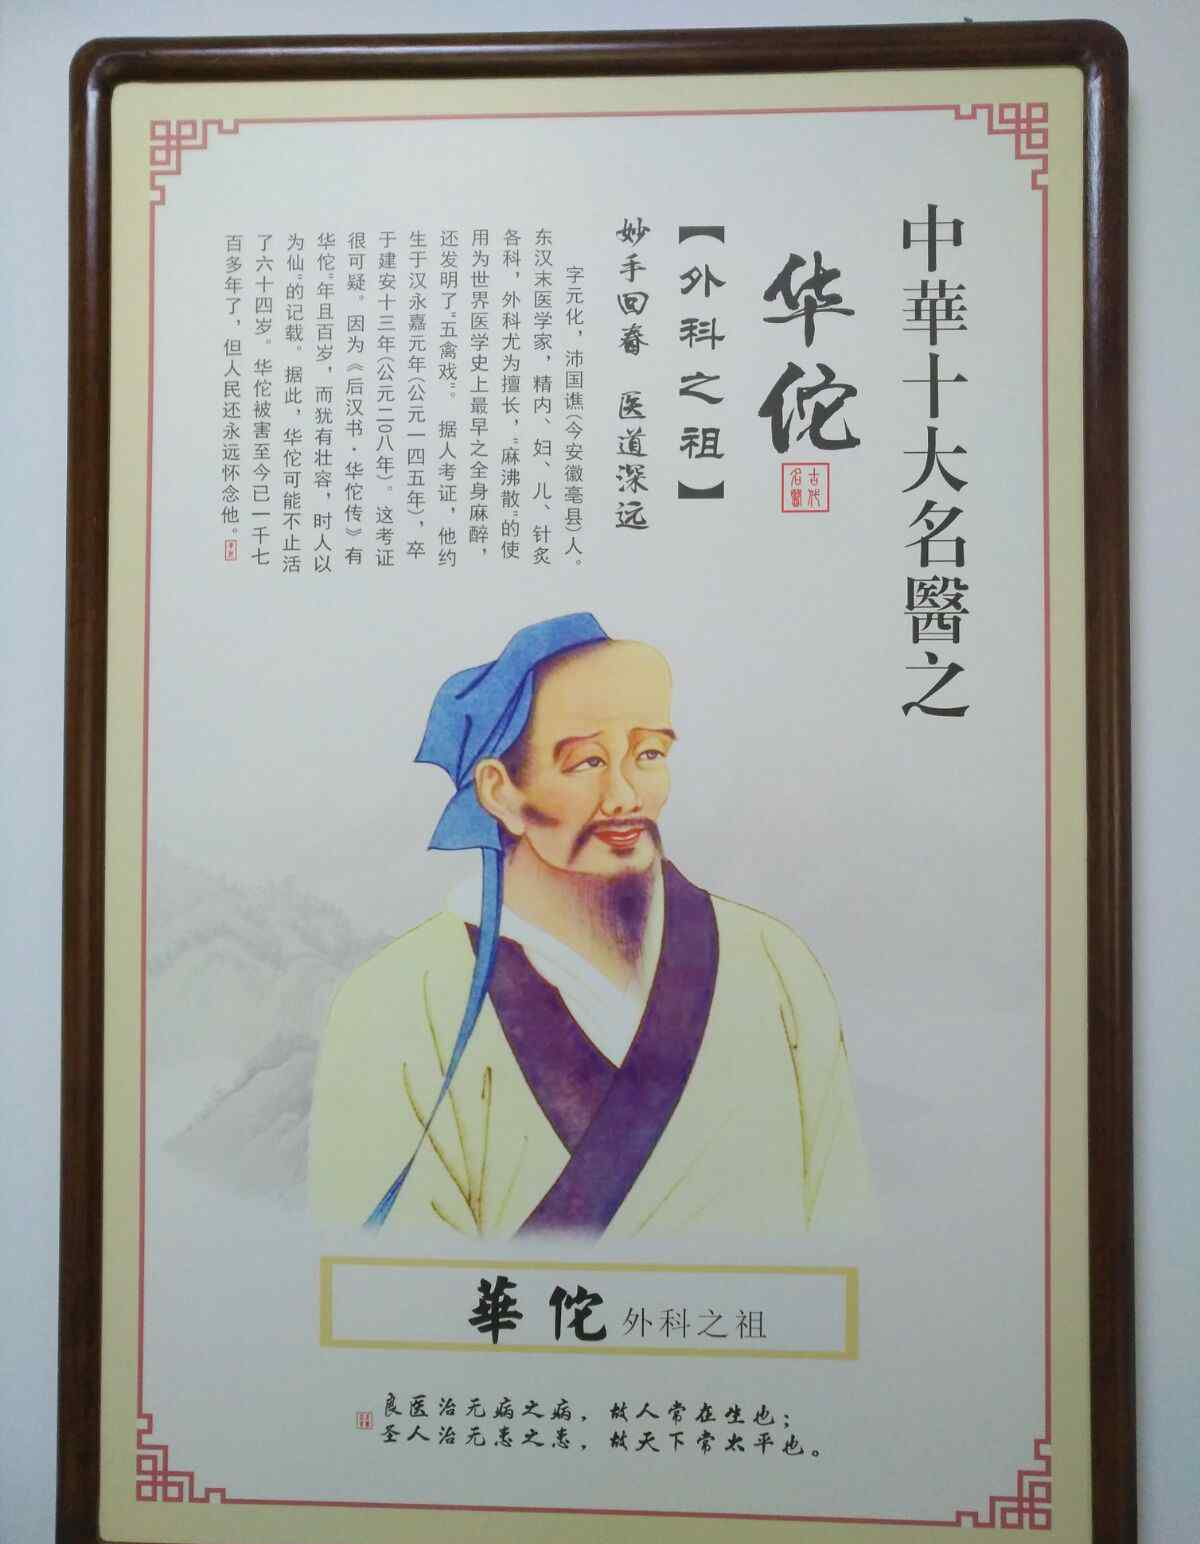 中華十大名醫之
华佗
古代
名醫
【外科之祖】
妙手回春 医道深远
字元化，沛国谯(今安徽亳县)人。
东汉末医学家，精内、妇、儿、针炙
各科，外科尤为擅长，"麻沸散"的使
用为世界医学史上最早之全身麻醉，
还发明了"五禽戏"。 据人考证，他约
生于汉永嘉元年(公元一四五年)，卒
于建安十三年(公元二〇八年)。这考证
很可疑。因为《后汉书·华佗传》有
华佗"年且百岁，而犹有壮容，时人以
为仙"的记载。据此，华佗可能不止活
了六十四岁。华佗被害至今已一千七
百多年了，但人民还永远怀念他。
華佗 外科之祖
良医治无病之病，故人常在生也；
圣人治无患之患，故天下常太平也。